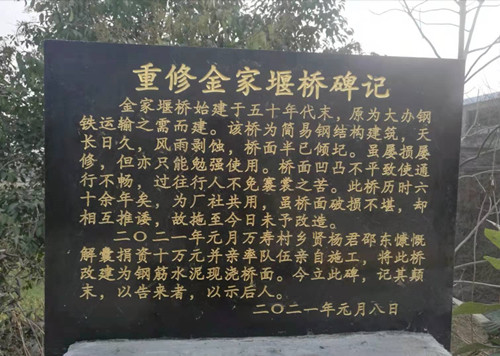 重修金家堰桥碑记
金家堰桥始建于五十年代末，原为大办钢
铁运输之需而建。该桥为简易钢结构建筑，天
长日久，风雨剥蚀，桥面半已倾圮。虽屡损屡
修，但亦只能勉强使用。桥面凹凸不平致使通
行不畅，过往行人不免褰裳之苦。此桥历时六
十余年矣，为厂社共用，虽桥面破损不堪，却
相互推诿，故拖至今日未予改造。
二〇二一年元月万寿村乡贤杨君邵东慷慨
解囊捐资十万元并亲率队伍亲自施工，将此桥
改建为钢筋水泥现浇桥面。今立此碑，记其颠
末，以告来者，以示后人。
二〇二一年元月八日